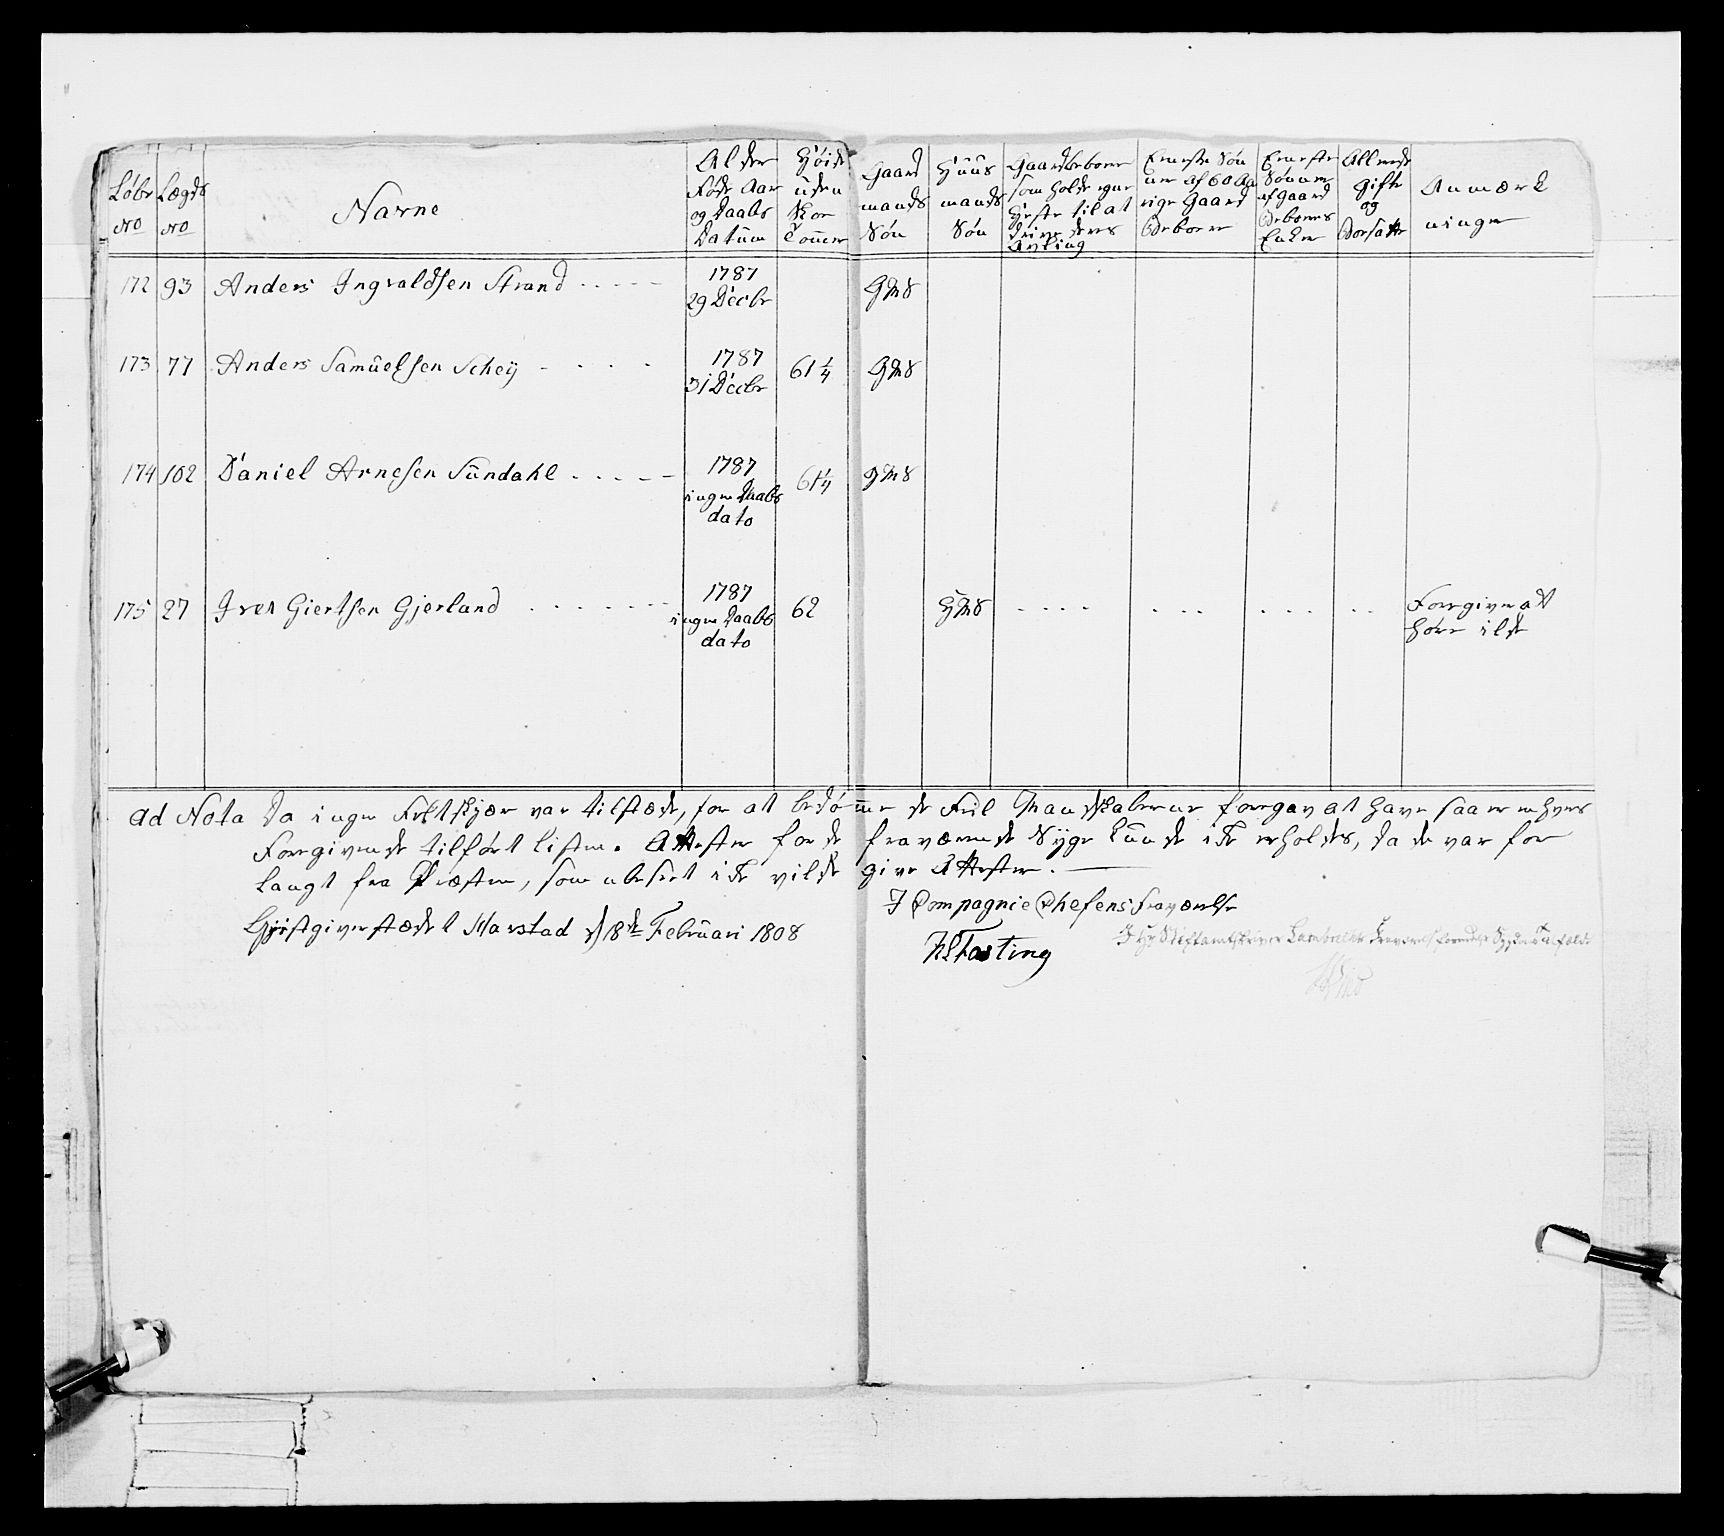 Löbe No
Lægds No
Navne
Alder Føde Aar og Daabs Datum
Høide uden Skoe Tommer
Gaard mands Søn
Huus mands Søn
Gaardbeboere som holde egne Heste til at drive deres Avling
Eeneste Søn af 60 Aarige Gaard beboere
Eeneste Sønner af Gaard beboeres Enker
Allerede Gifte og Bosatte
Anmærkninger
172 93 Anders Ingvaldsen Strand 1787 29 Decbr GMS
173 77 Anders Samuelsen Scheÿ 1787 31 Decbr 61 1/4 GMS
174 102 Daniel Arnesen Sundahl 1787 ingen Daabs dato 61 1/4 GMS
175 27 Iver Giertsen Gjerland 1787 ingen Daabs dato 62 HMS Foregiver at høre ilde
ad Nota Da ingen Feltskjær var tilstæde, for at bedømme de Feil Mandskaberne foregav at have saa er enhvers
Foregivende tilført Listen. Attester for de fraværende Syge kunde ikke erholdes, da de var for
langt fra Præsten, som ubeseet ikke vilde give Attester.
Gjæstgiverstædet Marstad d 18de Februari 1808
I Compagnie Chefens Fraværelse
Fasting